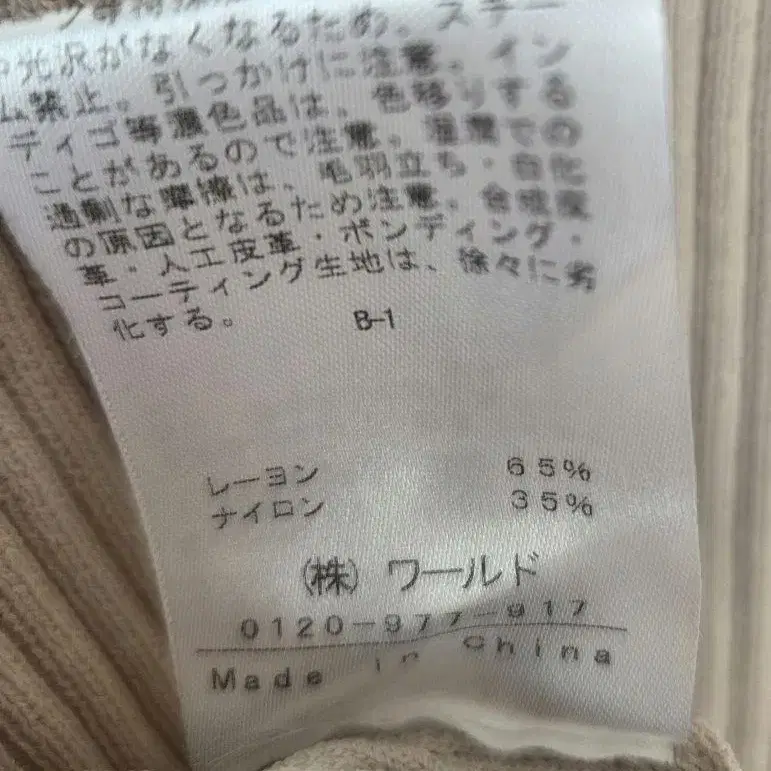 光沢がなくなるため。スチー
ム禁止。引っかけに注意。イン
ディゴ等濃色品は、色移りする
ことがあるので注意。湿潤での
過剰な摩擦は、毛羽立ち・白化
の原因となるため注意。合成皮
革・人工皮革・ボンディング・
コーティング生地は、徐々に劣
化する。 B-1
レーヨン 65%
ナイロン 35%
(株)ワールド
0120-977-917
Made in China